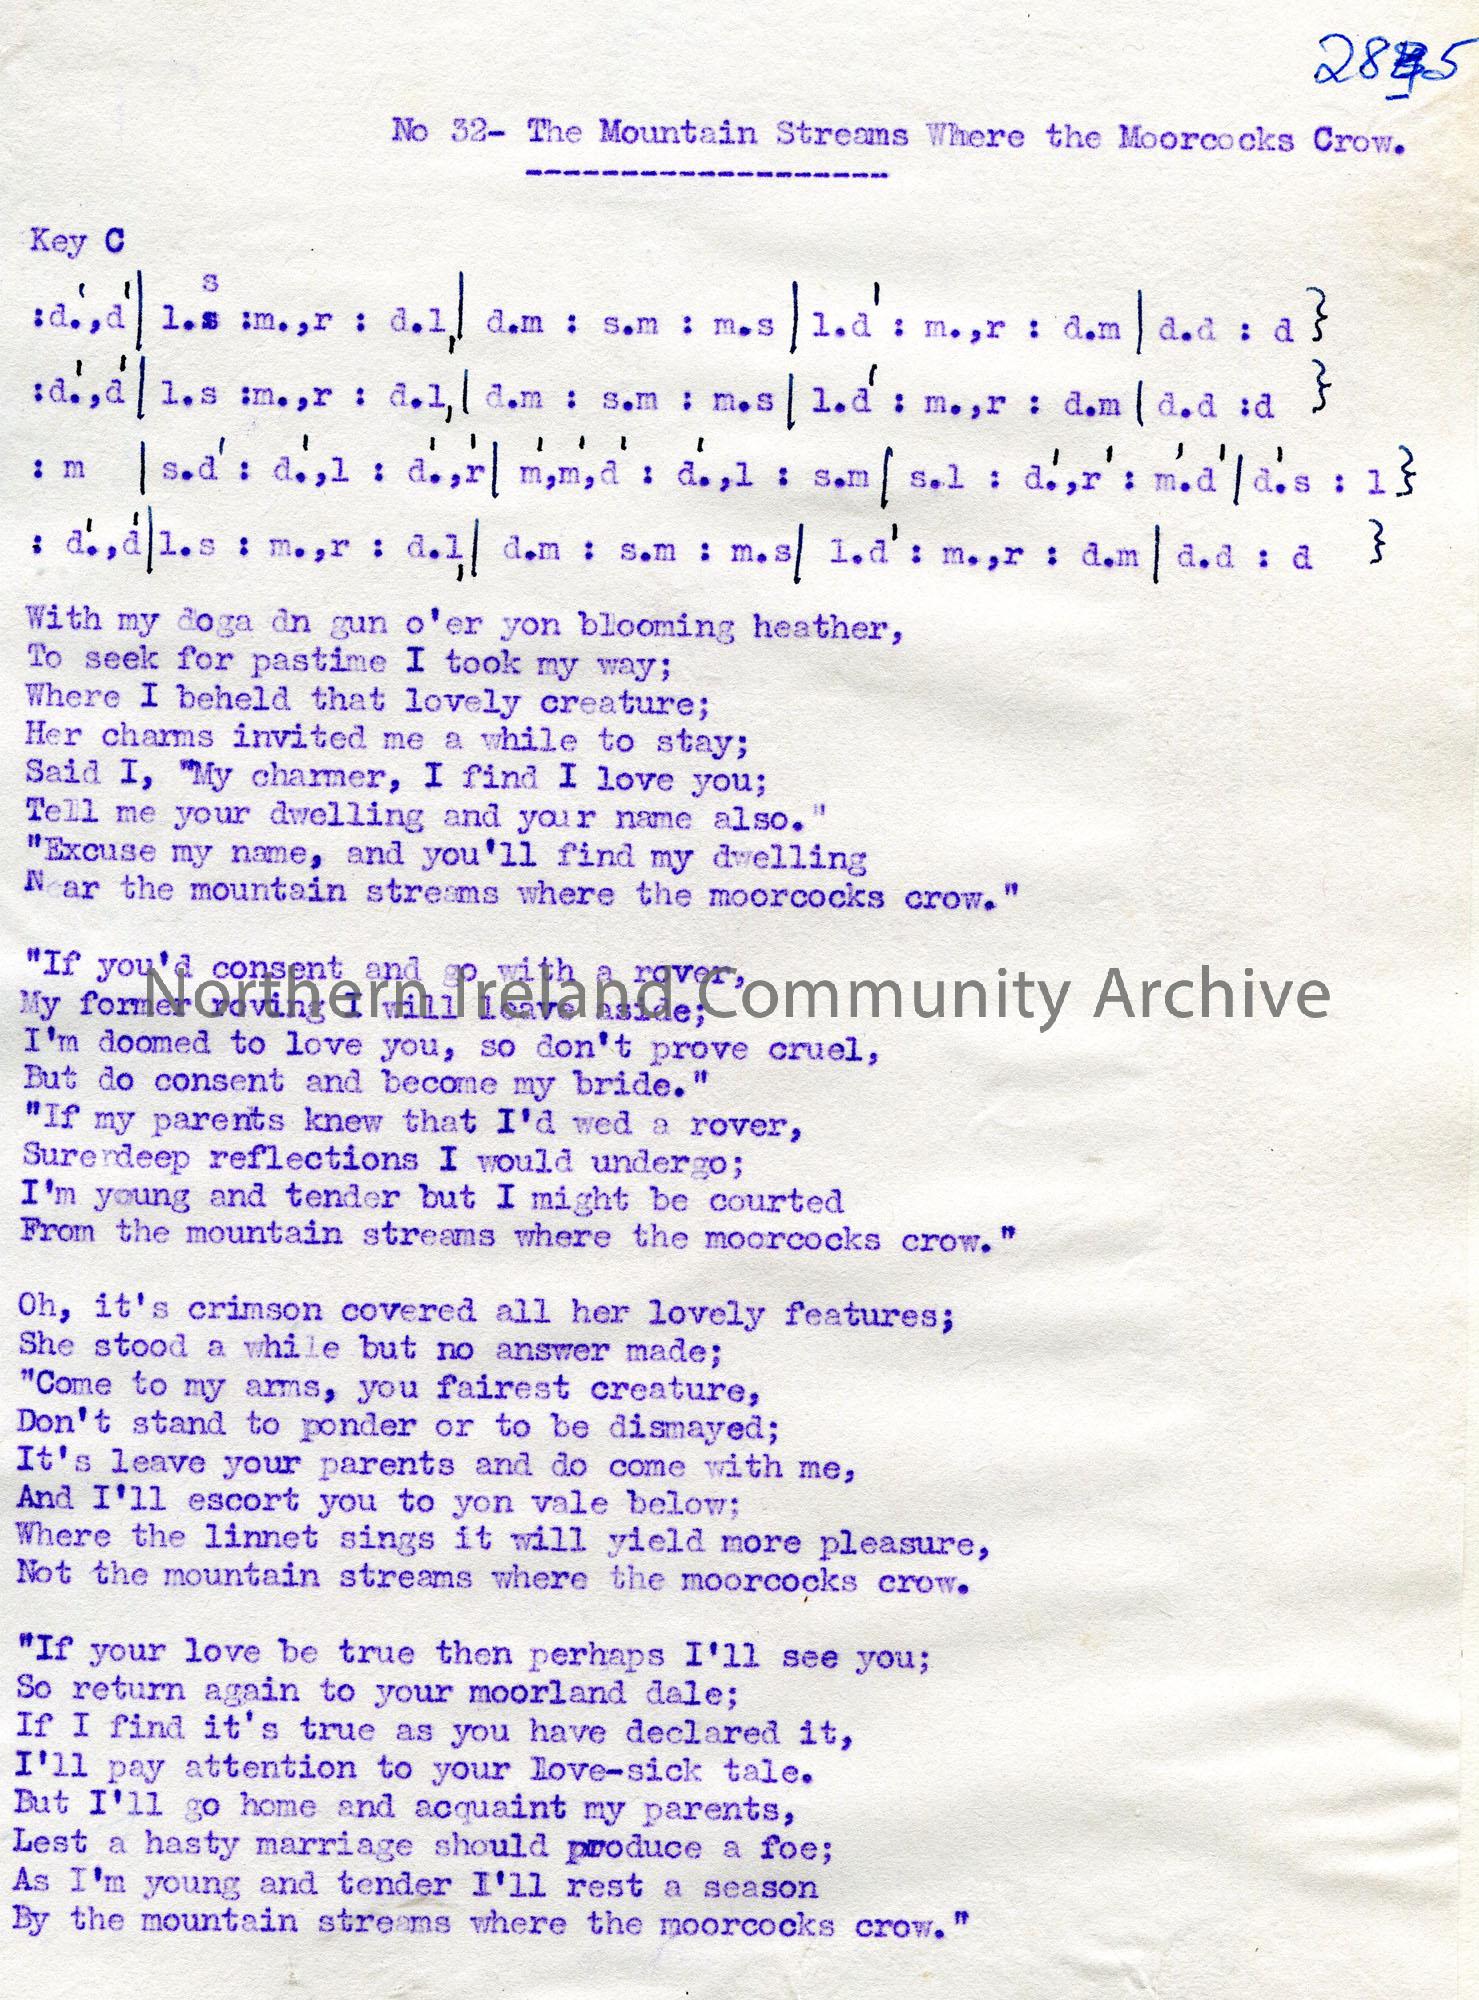 No 32- The Mountain Streams Where the Moorcocks Crow.
Key C
s
:d'.,d'| l.s :m.,r : d.l,| d.m : s.m : m.s| l.d' : m.,r : d.m| d.d : d }
:d'.,d'| l.s :m.,r : d.l,| d.m : s.m : m.s| l.d' : m.,r : d.m| d.d :d }
: m | s.d' : d'.,l : d'.,r'| m',m',d' : d'.,l : s.m| s.l : d'.,r' : m'.d'| d'.s : l}
: d'.,d'|l.s : m.,r : d.l,| d.m : s.m : m.s| l.d' : m.,r : d.m| d.d : d }
With my doga dn gun o'er yon blooming heather,
To seek for pastime I took my way;
Where I beheld that lovely creature;
Her charms invited me a while to stay;
Said I, "My charmer, I find I love you;
Tell me your dwelling and your name also."
"Excuse my name, and you'll find my dwelling
Near the mountain streams where the moorcocks crow."
"If you'd consent and go with a rover,
Northern Ireland Community Archive
My former roving I will leave aside;
I'm doomed to love you, so don't prove cruel,
But do consent and become my bride."
"If my parents knew that I'd wed a rover,
Sure deep reflections I would undergo;
I'm young and tender but I might be courted
From the mountain streams where the moorcocks crow."
Oh, it's crimson covered all her lovely features;
She stood a while but no answer made;
"Come to my arms, you fairest creature,
Don't stand to ponder or to be dismayed;
It's leave your parents and do come with me,
And I'll escort you to yon vale below;
Where the linnet sings it will yield more pleasure,
Not the mountain streams where the moorcocks crow.
"If your love be true then perhaps I'll see you;
So return again to your moorland dale;
If I find it's true as you have declared it,
I'll pay attention to your love-sick tale.
But I'll go home and acquaint my parents,
Lest a hasty marriage should produce a foe;
As I'm young and tender I'll rest a season
By the mountain streams where the moorcocks crow."